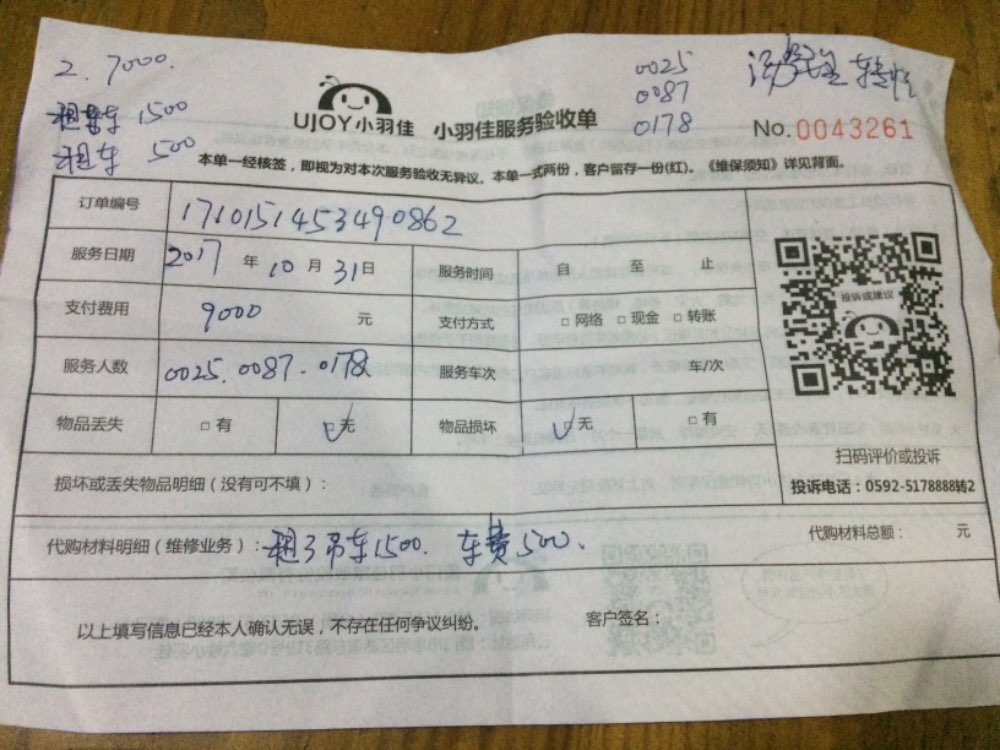 2. 7000.
租吊车 1500
租车 500
0025
0087
0178
转账
UJOY小羽佳 小羽佳服务验收单
No.0043261
本单一经核签，即视为对本次服务验收无异议。本单一式两份，客户留存一份(红)。《维保须知》详见背面。
订单编号 1710151453490862
服务日期 2017 年 10 月 31 日 服务时间 自 至 止
支付费用 9000 元 支付方式 □ 网络 □ 现金 □ 转账
服务人数 0025.0087.0178 服务车次 车/次
物品丢失 □ 有 □ 无 物品损坏 □ 无 □ 有
投诉或建议
扫码评价或投诉
投诉电话：0592-5178888转2
损坏或丢失物品明细（没有可不填）：
代购材料明细（维修业务）：租了吊车1500. 车费500. 代购材料总额： 元
以上填写信息已经本人确认无误，不存在任何争议纠纷。 客户签名：